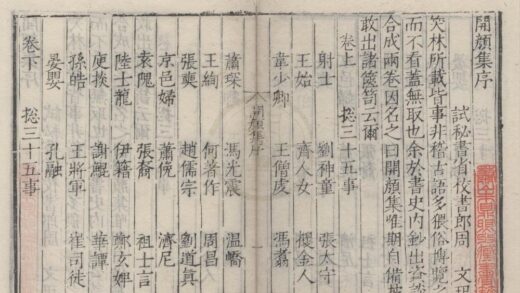 開顏集序
試秘書省校書郎周 文
笑林所載皆事非稽古語多猥俗博覽
而不看蓋無取也余於書史內鈔出
合成兩卷因名之曰開顏集唯期自備
敢出諸篋笥云爾
卷上 揔三十五事
射士 劉神童 張太守
王始 齊人女 攫金人
韋少卿 王僧虔 馮翥
開顏集序
蕭琛 馮光震 溫嶠
王絢 何著作 周昌
張奭 趙儒宗 劉道真
京邑婦 蕭俛 濟尼
袁隗 張裔 祖士言
陸士龍 伊籍 鄭玄婢
庾 謝鯤 華譚
孫皓 王將軍 崔司徒
晏嬰 孔融
卷下 揔三十五事